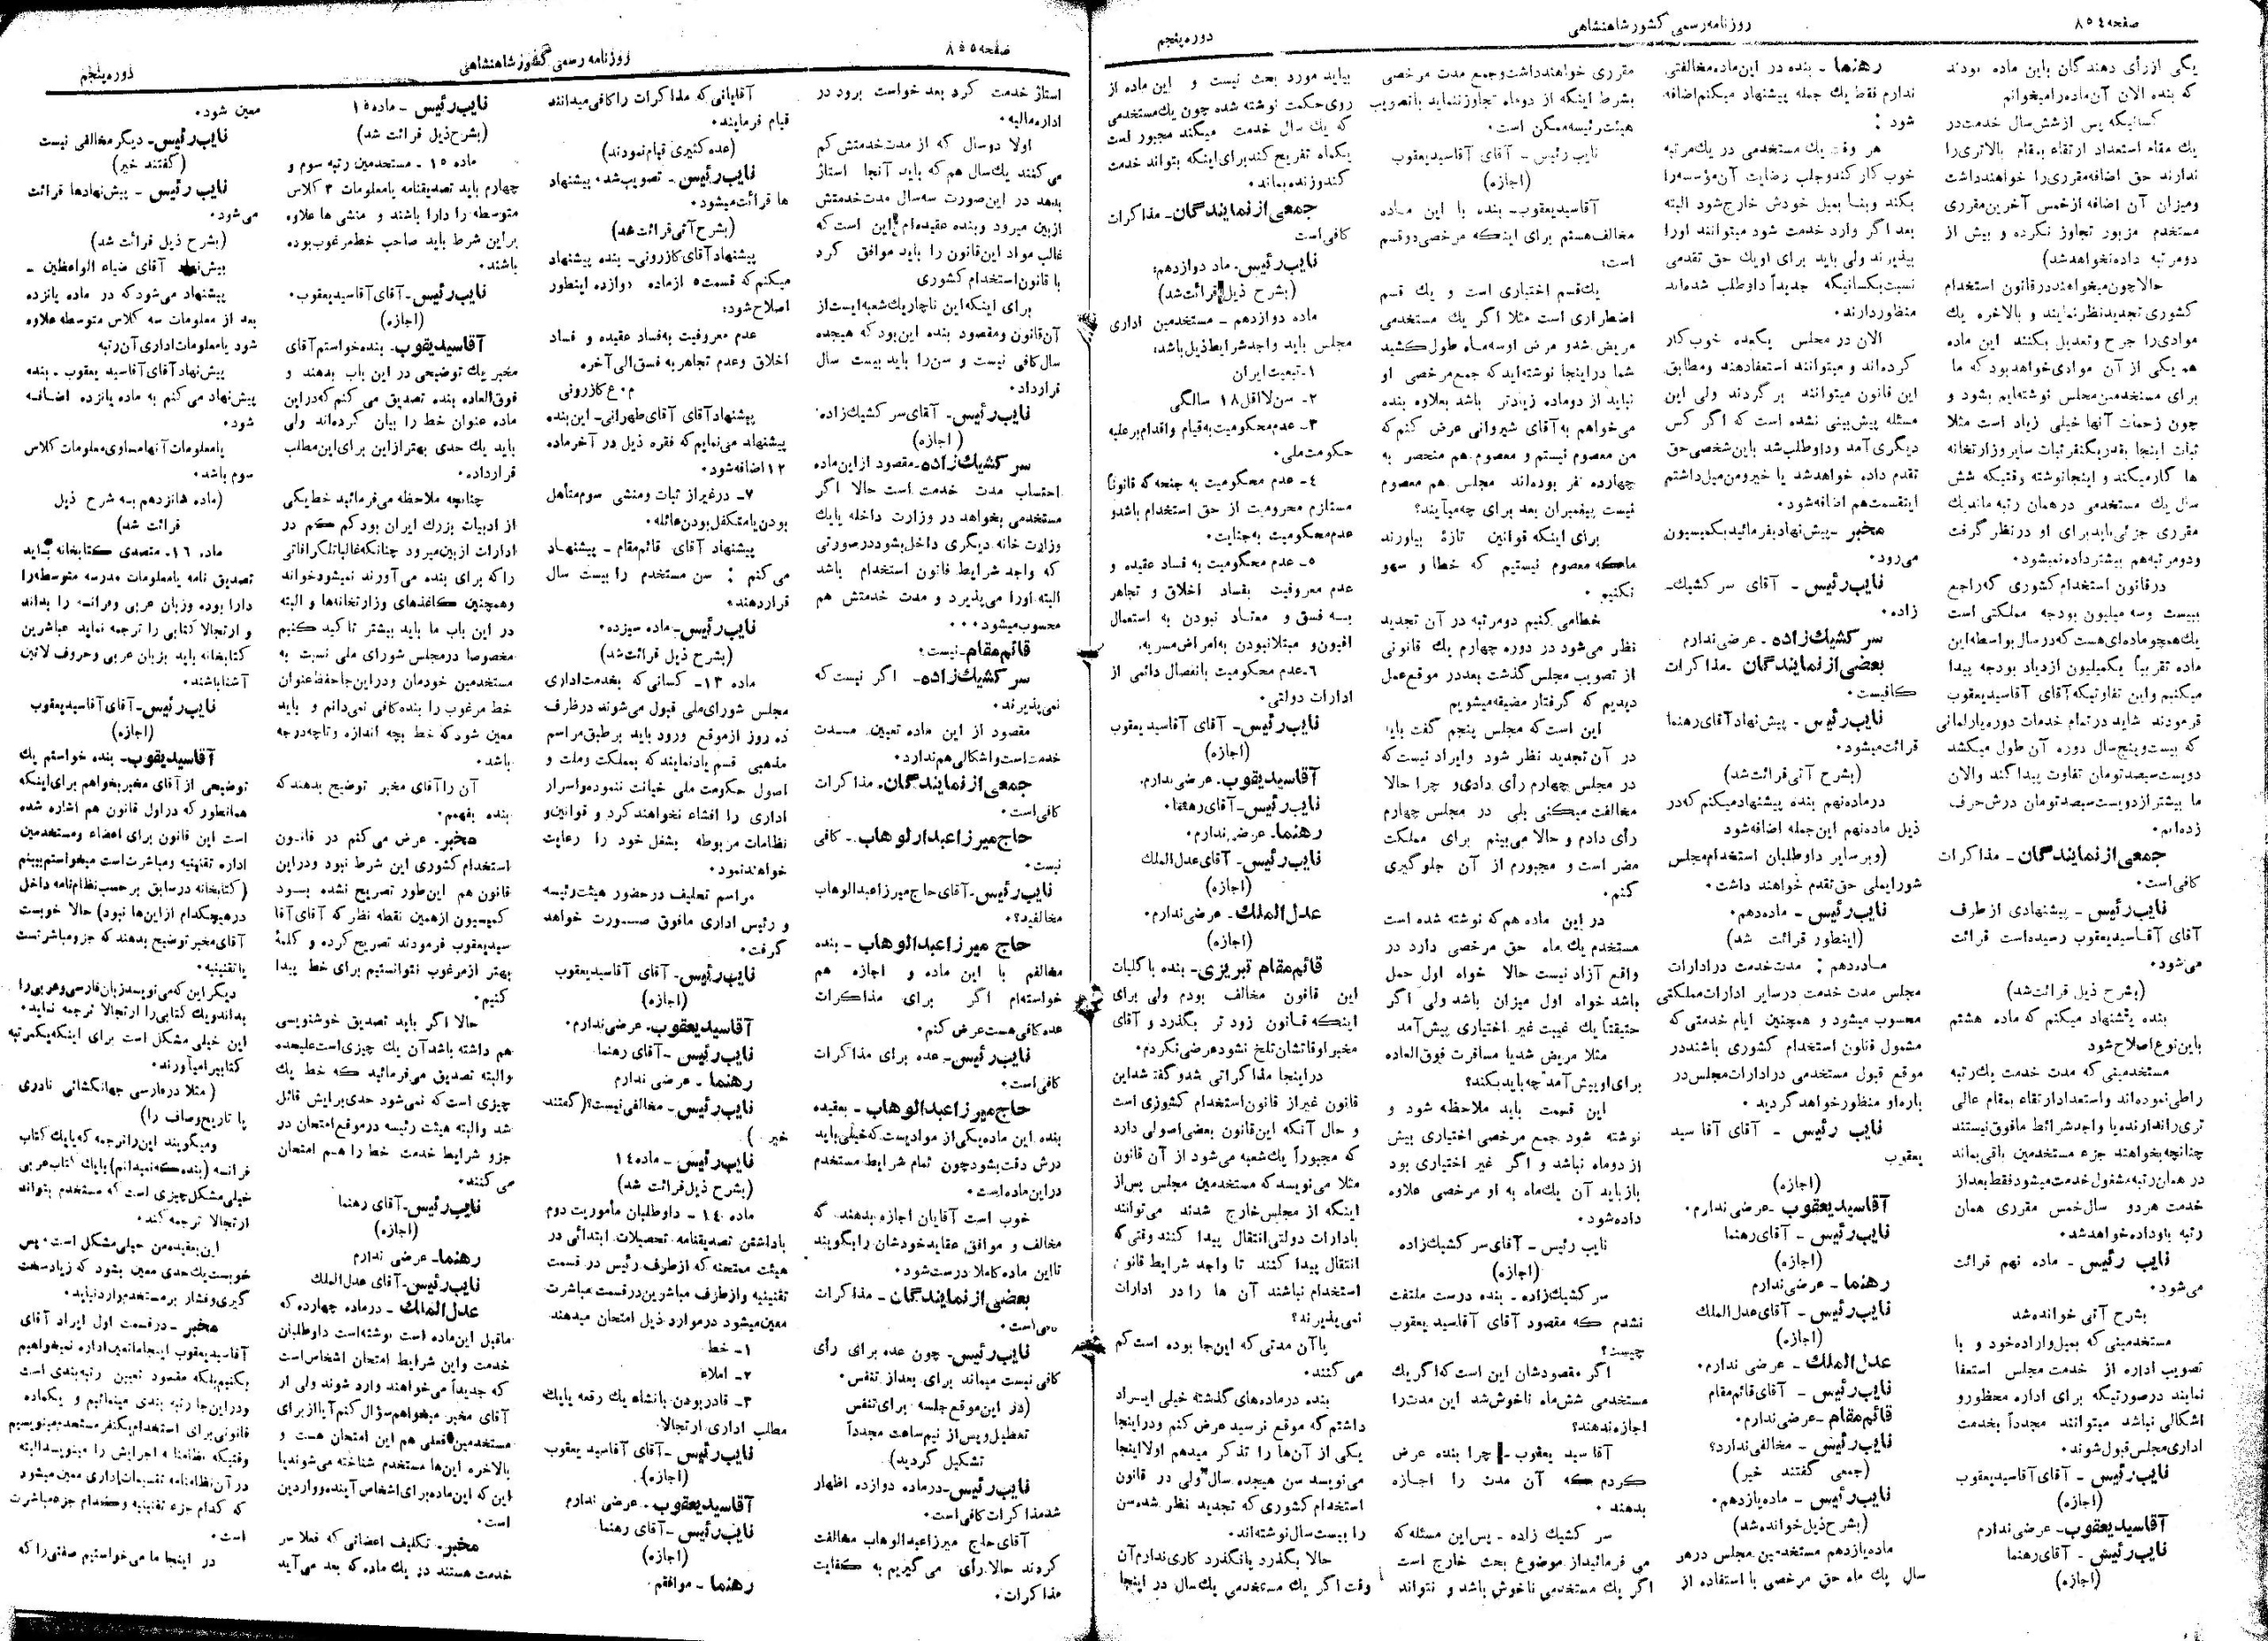 صفحه ۸۵٤
روزنامه رسمی کشور شاهنشاهی
دوره پنجم
یکی از رأی دهندگان باین ماده بودند
که بنده الان آن ماده را میخوانم
کسانیکه پس از شش سال خدمت در
یك مقام استعداد ارتقاء بمقام بالاتری را
ندارند حق اضافه مقرری را خواهند داشت
و میزان آن اضافه از خمس آخرین مقرری
مستخدم مزبور تجاوز نکرده و بیش از
دو مرتبه داده نخواهد شد)
حالا چون میخواهند در قانون استخدام
کشوری تجدید نظر نمایند و بالاخره یك
موادی را جرح و تعدیل بکنند این ماده
هم یکی از آن موادی خواهد بود که ما
برای مستخدمین مجلس نوشته‌ایم بشود و
چون زحمات آنها خیلی زیاد است مثلا
ثبات اینجا بقدر یکنفر ثبات سایر وزارتخانه
ها کار میکند و اینجا نوشته وقتیکه شش
سال یك مستخدمی در همان رتبه ماند یك
مقرری جزئی باید برای او در نظر گرفت
و دو مرتبه هم بیشتر داده نمیشود.
در قانون استخدام کشوری که راجع
ببیست و سه میلیون بودجه مملکتی است
یك همچو ماده‌ای هست که در سال بواسطه این
ماده تقریباً یکمیلیون ازدیاد بودجه پیدا
میکنیم و این تفاوتیکه آقای آقا سید یعقوب
فرمودند شاید در تمام خدمات دوره پارلمانی
که بیست و پنج سال دوره آن طول میکشد
دویست سیصد تومان تفاوت پیدا کند و الان
ما بیشتر از دویست سیصد تومان درش حرف
زده‌ایم.
جمعی از نمایندگان ـ مذاکرات
کافی است.
نایب رئیس ـ پیشنهادی از طرف
آقای آقا سید یعقوب رسیده است قرائت
می‌شود.
(بشرح ذیل قرائت شد)
بنده پیشنهاد میکنم که ماده هشتم
باین نوع اصلاح شود
مستخدمینی که مدت خدمت یك رتبه
را طی نموده‌اند و استعداد ارتقاء بمقام عالی
تری را ندارند یا واجد شرائط مافوق نیستند
چنانچه بخواهند جزء مستخدمین باقی بماند
در همان رتبه مشغول خدمت میشود فقط بعد از
خدمت هر دو سال خمس مقرری همان
رتبه باو داده خواهد شد.
نایب رئیس ـ ماده نهم قرائت
می‌شود.
بشرح آتی خوانده شد
مستخدمینی که بمیل و اراده خود و با
تصویب اداره از خدمت مجلس استعفا
نمایند در صورتیکه برای اداره محظور و
اشکالی نباشد میتوانند مجدداً بخدمت
اداری مجلس قبول شوند.
نایب رئیس ـ آقای آقا سید یعقوب
(اجازه)
آقا سید یعقوب ـ عرضی ندارم
نایب رئیس ـ آقای رهنما
(اجازه)
رهنما ـ بنده در این ماده مخالفتی
ندارم فقط یك جمله پیشنهاد میکنم اضافه
شود :
هر وقت یك مستخدمی در یك مرتبه
خوب کار کند و جلب رضایت آن مؤسسه را
بکند و بنا بمیل خودش خارج شود البته
بعد اگر وارد خدمت شود میتوانند او را
بپذیرند ولی باید برای او یك حق تقدمی
نسبت بکسانیکه جدیداً داوطلب شده‌اند
منظور دارند.
الان در مجلس یکعده خوب کار
کرده‌اند و میتوانند استعفا دهند و مطابق
این قانون میتوانند بر گردند ولی این
مسئله پیش بینی نشده است که اگر کس
دیگری آمد و داوطلب شد باین شخص حق
تقدم داده خواهد شد یا خیر و من میل داشتم
اینقسمت هم اضافه شود.
مخبر ـ پیشنهاد بفرمائید بکمیسیون
می‌رود.
نایب رئیس ـ آقای سر کشیك‌ـ
زاده.
سر کشیك زاده ـ عرضی ندارم
بعضی از نمایندگان ـ مذاکرات
کافیست.
نایب رئیس ـ پیشنهاد آقای رهنما
قرائت میشود.
(بشرح آتی قرائت شد)
در ماده نهم بنده پیشنهاد میکنم که در
ذیل ماده نهم این جمله اضافه شود
(و بر سایر داوطلبان استخدام مجلس
شورایملی حق تقدم خواهند داشت.
نایب رئیس ـ ماده دهم.
(اینطور قرائت شد)
ماده دهم : مدت خدمت در ادارات
مجلس مدت خدمت در سایر ادارات مملکتی
محسوب میشود و همچنین ایام خدمتی که
مشمول قانون استخدام کشوری باشند در
موقع قبول مستخدمی در ادارات مجلس در
باره او منظور خواهد گردید.
نایب رئیس ـ آقای آقا سید
یعقوب
(اجازه)
آقا سید یعقوب ـ عرضی ندارم.
نایب رئیس ـ آقای رهنما
(اجازه)
رهنما ـ عرضی ندارم
نایب رئیس ـ آقای عدل الملك
(اجازه)
عدل الملك ـ عرضی ندارم.
نایب رئیس ـ آقای قائم مقام
قائم مقام ـ عرضی ندارم.
نایب رئیس ـ مخالفی ندارد؟
(جمعی گفتند خیر)
نایب رئیس ـ ماده یازدهم.
(بشرح ذیل خوانده شد)
ماده یازدهم مستخدمین مجلس در هر
سال یك ماه حق مرخصی با استفاده از
مقرری خواهند داشت و جمع مدت مرخصی
بشرط اینکه از دو ماه تجاوز ننماید با تصویب
هیئت رئیسه ممکن است.
نایب رئیس ـ آقای آقا سید یعقوب
(اجازه)
آقا سید یعقوب ـ بنده با این ماده
مخالف هستم برای اینکه مرخصی دو قسم
است:
یك قسم اختیاری است و یك قسم
اضطراری است مثلا اگر یك مستخدمی
مریض شد و مرض او سه ماه طول کشید
شما در اینجا نوشته‌اید که جمع مرخصی او
نباید از دو ماه زیادتر باشد بعلاوه بنده
می‌خواهم به آقای شیروانی عرض کنم که
من معصوم نیستم و معصوم هم منحصر به
چهارده نفر بوده‌اند مجلس هم معصوم
نیست پیغمبران بعد برای چه می‌آیند؟
برای اینکه قوانین تازهٔ بیاورند
ما که معصوم نیستیم که خطا و سهو
نکنیم.
خطا می کنیم دو مرتبه در آن تجدید
نظر می‌شود در دوره چهارم یك قانونی
از تصویب مجلس گذشت بعد در موقع عمل
دیدیم که گرفتار مضیقه میشویم
این است که مجلس پنجم گفت باید
در آن تجدید نظر شود و ایراد نیست که
در مجلس چهارم رأی دادی و چرا حالا
مخالفت میکنی بلی در مجلس چهارم
رأی دادم و حالا می‌بینم برای مملکت
مضر است و مجبورم از آن جلوگیری
کنم.
در این ماده هم که نوشته شده است
مستخدم یك ماه حق مرخصی دارد در
واقع آزاد نیست حالا خواه اول حمل
باشد خواه اول میزان باشد ولی اگر
حقیقتاً یك غیبت غیر اختیاری پیش آمد
مثلا مریض شد یا مسافرت فوق العاده
برای او پیش آمد چه باید بکند؟
این قسمت باید ملاحظه شود و
نوشته شود جمع مرخصی اختیاری بیش
از دو ماه نباشد و اگر غیر اختیاری بود
باز باید آن یك ماه به او مرخصی علاوه
داده شود.
نایب رئیس ـ آقای سر کشیك زاده
(اجازه)
سر کشیك زاده ـ بنده درست ملتفت
نشدم که مقصود آقای آقا سید یعقوب
چیست؟
اگر مقصودشان این است که اگر یك
مستخدمی شش ماه ناخوش شد این مدت را
اجازه ندهند؟
آقا سید یعقوب ـ چرا بنده عرض
کردم که آن مدت را اجازه
بدهند.
سر کشیك زاده ـ پس این مسئله که
می فرمائید از موضوع بحث خارج است
اگر یك مستخدمی ناخوش باشد و نتواند
بیاید مورد بحث نیست و این ماده از
روی حکمت نوشته شده چون یك مستخدمی
که یك سال خدمت میکند مجبور است
یکماه تفریح کند برای اینکه بتواند خدمت
کند و زنده بماند.
جمعی از نمایندگان ـ مذاکرات
کافی است
نایب رئیس ـ ماد دوازدهم:
(بشرح ذیل قرائت شد)
ماده دوازدهم ـ مستخدمین اداری
مجلس باید واجد شرایط ذیل باشد:
۱ـ تبعیت ایران
۲ـ سن لااقل ۱۸ سالگی
۳ـ عدم محکومیت به قیام و اقدام بر علیه
حکومت ملی.
٤ـ عدم محکومیت به جنحه که قانوناً
مستلزم محرومیت از حق استخدام باشد و
عدم محکومیت به جنایت.
٥ـ عدم محکومیت به فساد عقیده و
عدم معروفیت بفساد اخلاق و تجاهر
به فسق و معتاد نبودن به استعمال
افیون و مبتلا نبودن به امراض مسریه.
٦ـ عدم محکومیت بانفصال دائمی از
ادارات دولتی.
نایب رئیس ـ آقای آقا سید یعقوب
(اجازه)
آقا سید یعقوب ـ عرضی ندارم.
نایب رئیس ـ آقای رهنما.
رهنما ـ عرضی ندارم.
نایب رئیس ـ آقای عدل الملك
(اجازه)
عدل الملك ـ عرضی ندارم.
(اجازه)
قائم مقام تبریزی ـ بنده با کلیات
این قانون مخالف بودم ولی برای
اینکه قانون زود تر بگذرد و آقای
مخبر اوقاتشان تلخ نشود عرضی نکردم.
در اینجا مذاکراتی شد و گفته شد این
قانون غیر از قانون استخدام کشوری است
و حال آنکه این قانون بعضی اصولی دارد
که مجبوراً یك شعبه می‌شود از آن قانون
مثلا می نویسد که مستخدمین مجلس پس از
اینکه از مجلس خارج شدند می‌توانند
بادارات دولتی انتقال پیدا کنند وقتی که
انتقال پیدا کنند تا واجد شرایط قانون
استخدام نباشند آن ها را در ادارات
نمی‌پذیرند؟
یا آن مدتی که این جا بوده است کم
می کنند.
بنده در ماده‌های گذشته خیلی ایراد
داشتم که موقع نرسید عرض کنم و در اینجا
یکی از آن‌ها را تذکر میدهم اولا اینجا
می‌نویسد سن هیجده سال ولی در قانون
استخدام کشوری که تجدید نظر شده سن
را بیست سال نوشته‌اند.
حالا بگذرد یا نگذرد کاری ندارم آن
وقت اگر یك مستخدمی یك سال در اینجا
صفحه ۸٥٥
روزنامه رسمی کشور شاهنشاهی
دوره پنجم
استاژ خدمت کرد بعد خواست برود در
اداره مالیه.
اولا دو سال که از مدت خدمتش کم
می کنند یك سال هم که باید آنجا استاژ
بدهد در این صورت سه سال مدت خدمتش
از بین میرود و بنده عقیده‌ام این است که
غالب مواد این قانون را باید موافق کرد
با قانون استخدام کشوری
برای اینکه این ناچار یك شعبه ایست از
آن قانون و مقصود بنده این بود که هیجده
سال کافی نیست و سن را باید بیست سال
قرار داد.
نایب رئیس ـ آقای سر کشیك زاده.
(اجازه)
سر کشیك زاده ـ مقصود از این ماده
احتساب مدت خدمت است حالا اگر
مستخدمی بخواهد در وزارت داخله یا یك
وزارت خانه دیگری داخل بشود در صورتی
که واجد شرایط قانون استخدام باشد
البته او را می‌پذیرد و مدت خدمتش هم
محسوب میشود...
قائم مقام ـ نیست.
سر کشیك زاده ـ اگر نیست که
نمی‌پذیرند.
مقصود از این ماده تعیین مدت
خدمت است و اشکالی هم ندارد.
جمعی از نمایندگان ـ مذاکرات
کافی است.
حاج میرزا عبدالوهاب ـ کافی
نیست.
نایب رئیس ـ آقای حاج میرزا عبدالوهاب
مخالفید؟.
حاج میرزا عبدالوهاب ـ بنده
مخالفم با این ماده و اجازه هم
خواسته‌ام اگر برای مذاکرات
عده کافی هست عرض کنم.
نایب رئیس ـ عده برای مذاکرات
کافی است.
حاج میرزا عبدالوهاب ـ بعقیده
بنده این ماده یکی از موادیست که خیلی باید
درش دقت بشود چون تمام شرایط مستخدم
در این ماده است.
خوب است آقایان اجازه بدهند که
مخالف و موافق عقاید خودشان را بگویند
تا این ماده کاملا درست شود.
بعضی از نمایندگان ـ مذاکرات
کافی است.
نایب رئیس ـ چون عده برای رأی
کافی نیست میماند برای بعد از تنفس.
(در این موقع جلسه برای تنفس
تعطیل و پس از نیم ساعت مجدداً
تشکیل گردید)
نایب رئیس ـ در ماده دوازده اظهار
شد مذاکرات کافی است.
آقای حاج میرزا عبدالوهاب مخالفت
کردند حالا رأی می گیریم به کفایت
مذاکرات.
آقایانی که مذاکرات را کافی میدانند
قیام فرمایند.
(عده کثیری قیام نمودند)
نایب رئیس ـ تصویب شد. پیشنهاد
ها قرائت میشود.
(بشرح آتی قرائت شد)
پیشنهاد آقای کازرونی ـ بنده پیشنهاد
میکنم که قسمت ٥ از ماده دوازده اینطور
اصلاح شود:
عدم معروفیت به فساد عقیده و فساد
اخلاق و عدم تجاهر به فسق الی آخره
م. ع کازرونی
پیشنهاد آقای آقای طهرانی ـ این بنده
پیشنهاد می‌نمایم که فقره ذیل در آخر ماده
۱۲ اضافه شود.
۷ـ در غیر از ثبات و منشی سوم متأهل
بودن یا متکفل بودن عائله.
پیشنهاد آقای قائم مقام ـ پیشنهاد
می کنم : سن مستخدم را بیست سال
قرار دهند.
نایب رئیس ـ ماده سیزده.
(بشرح ذیل قرائت شد)
ماده ۱۳ـ کسانی که بخدمت اداری
مجلس شورای ملی قبول می شوند در ظرف
ده روز از موقع ورود باید بر طبق مراسم
مذهبی قسم یاد نمایند که بمملکت و ملت و
اصول حکومت ملی خیانت ننمود و اسرار
اداری را افشاء نخواهند کرد و قوانین و
نظامات مربوطه بشغل خود را رعایت
خواهند نمود.
مراسم تحلیف در حضور هیئت رئیسه
و رئیس اداری مافوق صورت خواهد
گرفت.
نایب رئیس ـ آقای آقا سید یعقوب
(اجازه)
آقا سید یعقوب ـ عرضی ندارم.
نایب رئیس ـ آقای رهنما.
رهنما ـ عرضی ندارم
نایب رئیس ـ مخالفی نیست؟(گفتند
خیر.)
نایب رئیس ـ ماده ۱٤
(بشرح ذیل قرائت شد)
ماده ۱٤ ـ داوطلبان مأموریت دوم
با داشتن تصدیقنامه تحصیلات ابتدائی در
هیئت ممتحنه که از طرف رئیس در قسمت
تقنینیه و از طرف مباشرین در قسمت مباشرت
معین میشود در موارد ذیل امتحان میدهند
۱ـ خط
۲ـ املاء
۳ـ قادر بودن بانشاء یك رقعه یا یك
مطلب اداری ارتجالا.
نایب رئیس ـ آقای آقا سید یعقوب
(اجازه)
آقا سید یعقوب ـ عرضی ندارم
نایب رئیس ـ آقای رهنما.
(اجازه)
رهنما ـ موافقم.
نایب رئیس ـ ماده ۱٥
(بشرح ذیل قرائت شد)
ماده ۱٥ ـ مستخدمین رتبه سوم و
چهارم باید تصدیقنامه یا معلومات ۳ کلاس
متوسطه را دارا باشند و منشی ها علاوه
بر این شرط باید صاحب خط مرغوب بوده
باشند.
نایب رئیس ـ آقای آقا سید یعقوب.
(اجازه)
آقا سید یعقوب ـ بنده خواستم آقای
مخبر یك توضیحی در این باب بدهند و
فوق العاده بنده تصدیق می کنم که در این
ماده عنوان خط را بیان کرده‌اند ولی
باید یك حدی بهتر از این برای این مطلب
قرار داد.
چنانچه ملاحظه می فرمائید خط یکی
از ادبیات بزرك ایران بود کم کم در
ادارات از بین میرود چنانکه غالبا تلگرافاتی
را که برای بنده می آورند نمیشود خواند
و همچنین کاغذهای وزارتخانه‌ها و البته
در این باب ما باید بیشتر تاکید کنیم
مخصوصا در مجلس شورای ملی نسبت به
مستخدمین خودمان و در این جا حفظ عنوان
خط مرغوب را بنده کافی نمی‌دانم و باید
معین شود که خط بچه اندازه و تا چه درجه
باشد.
آن را آقای مخبر توضیح بدهند که
بنده بفهمم.
مخبر ـ عرض می کنم در قانون
استخدام کشوری این شرط نبود و در این
قانون هم این طور تصریح نشده بود
کمیسیون از همین نقطه نظر که آقای آقا
سید یعقوب فرمودند تصریح کرده و کلمهٔ
بهتر از مرغوب نتوانستیم برای خط پیدا
کنیم.
حالا اگر باید تصدیق خوشنویسی
هم داشته باشد آن یك چیزی است علیحده
و البته تصدیق می‌فرمائید که خط یك
چیزی است که نمی شود حدی برایش قائل
شد و البته هیئت رئیسه در موقع امتحان در
جزو شرایط خدمت خط را هم امتحان
می کنند.
نایب رئیس ـ آقای رهنما
(اجازه)
رهنما ـ عرضی ندارم
نایب رئیس ـ آقای عدل الملك
عدل الملك ـ در ماده چهارده که
ماقبل این ماده است نوشته است داوطلبان
خدمت و این شرایط امتحان اشخاص است
که جدیداً می خواهند وارد شوند ولی از
آقای مخبر میخواهم سؤال کنم آیا از برای
مستخدمین فعلی هم این امتحان هست و
بالاخره این‌ها مستخدم شناخته می‌شوند یا
این که این ماده برای اشخاص آینده و واردین
است.
مخبر ـ تکلیف اعضائی که فعلا سر
خدمت هستند در یك ماده که بعد می آید
معین شود.
نایب رئیس ـ دیگر مخالفی نیست
(گفتند خیر)
نایب رئیس ـ پیش نهادها قرائت
می شود.
(بشرح ذیل قرائت شد)
پیش نهاد آقای ضیاء الواعظین ـ
پیشنهاد می شود که در ماده پانزده
بعد از معلومات سه کلاس متوسطه علاوه
شود یا معلومات اداری آن رتبه
پیش نهاد آقای آقا سید یعقوب ـ بنده
پیش نهاد می کنم به ماده پانزده اضافه
شود.
یا معلومات آنها مساوی معلومات کلاس
سوم باشد.
(ماده شانزدهم به شرح ذیل
قرائت شد)
ماده ۱٦ـ متصدی کتابخانه باید
تصدیق نامه یا معلومات مدرسه متوسطه را
دارا بوده و زبان عربی و فرانسه را بداند
و ارتجالا کتابی را ترجمه نماید مباشرین
کتابخانه باید بزبان عربی و حروف لاتین
آشنا باشند.
نایب رئیس ـ آقای آقا سید یعقوب
(اجازه)
آقا سید یعقوب ـ بنده خواستم یك
توضیحی از آقای مخبر بخواهم برای اینکه
همانطور که در اول قانون هم اشاره شده
است این قانون برای اعضاء و مستخدمین
اداره تقنینیه و مباشرت است میخواستم ببینم
(کتابخانه در سابق بر حسب نظام نامه داخل
در هیچکدام از این‌ها نبود) حالا خوبست
آقای مخبر توضیح بدهند که جزو مباشرتست
یا تقنینیه.
دیگر این که می نویسد زبان فارسی و عربی را
بداند و یك کتابی را ارتجالا ترجمه نماید.
این خیلی مشکل است برای اینکه یکمرتبه
کتابی را میآورند.
(مثلا در فارسی جهانگشائی نادری
یا تاریخ وصاف را)
و میگویند این را ترجمه کن یا یك کتاب
فرانسه (بنده که نمیدانم) یا یك کتاب عربی
خیلی مشکل چیزی است که مستخدم بتواند
ارتجالا ترجمه کند.
این بعقیده من خیلی مشکل است. پس
خوبست یك حدی معین بشود که زیاد سخت
گیری و فشار بر مستخدم وارد نیاید.
مخبر ـ در قسمت اول ایراد آقای
آقا سید یعقوب اینجا ما تعیین اداره نمیخواهیم
بکنیم بلکه مقصود تعیین رتبه بندی است
و در این جا رتبه بندی مینمائیم و یکماده
قانونی برای استخدام یکنفر مستعد مینویسیم
وقتیکه نظامنامه اجرایش را مینویسد البته
در آن نظامنامه تقسیمات اداری معین میشود
که کدام جزء تقنینیه و کدام جزء مباشرت
است.
در اینجا ما می خواستیم صفتی را که